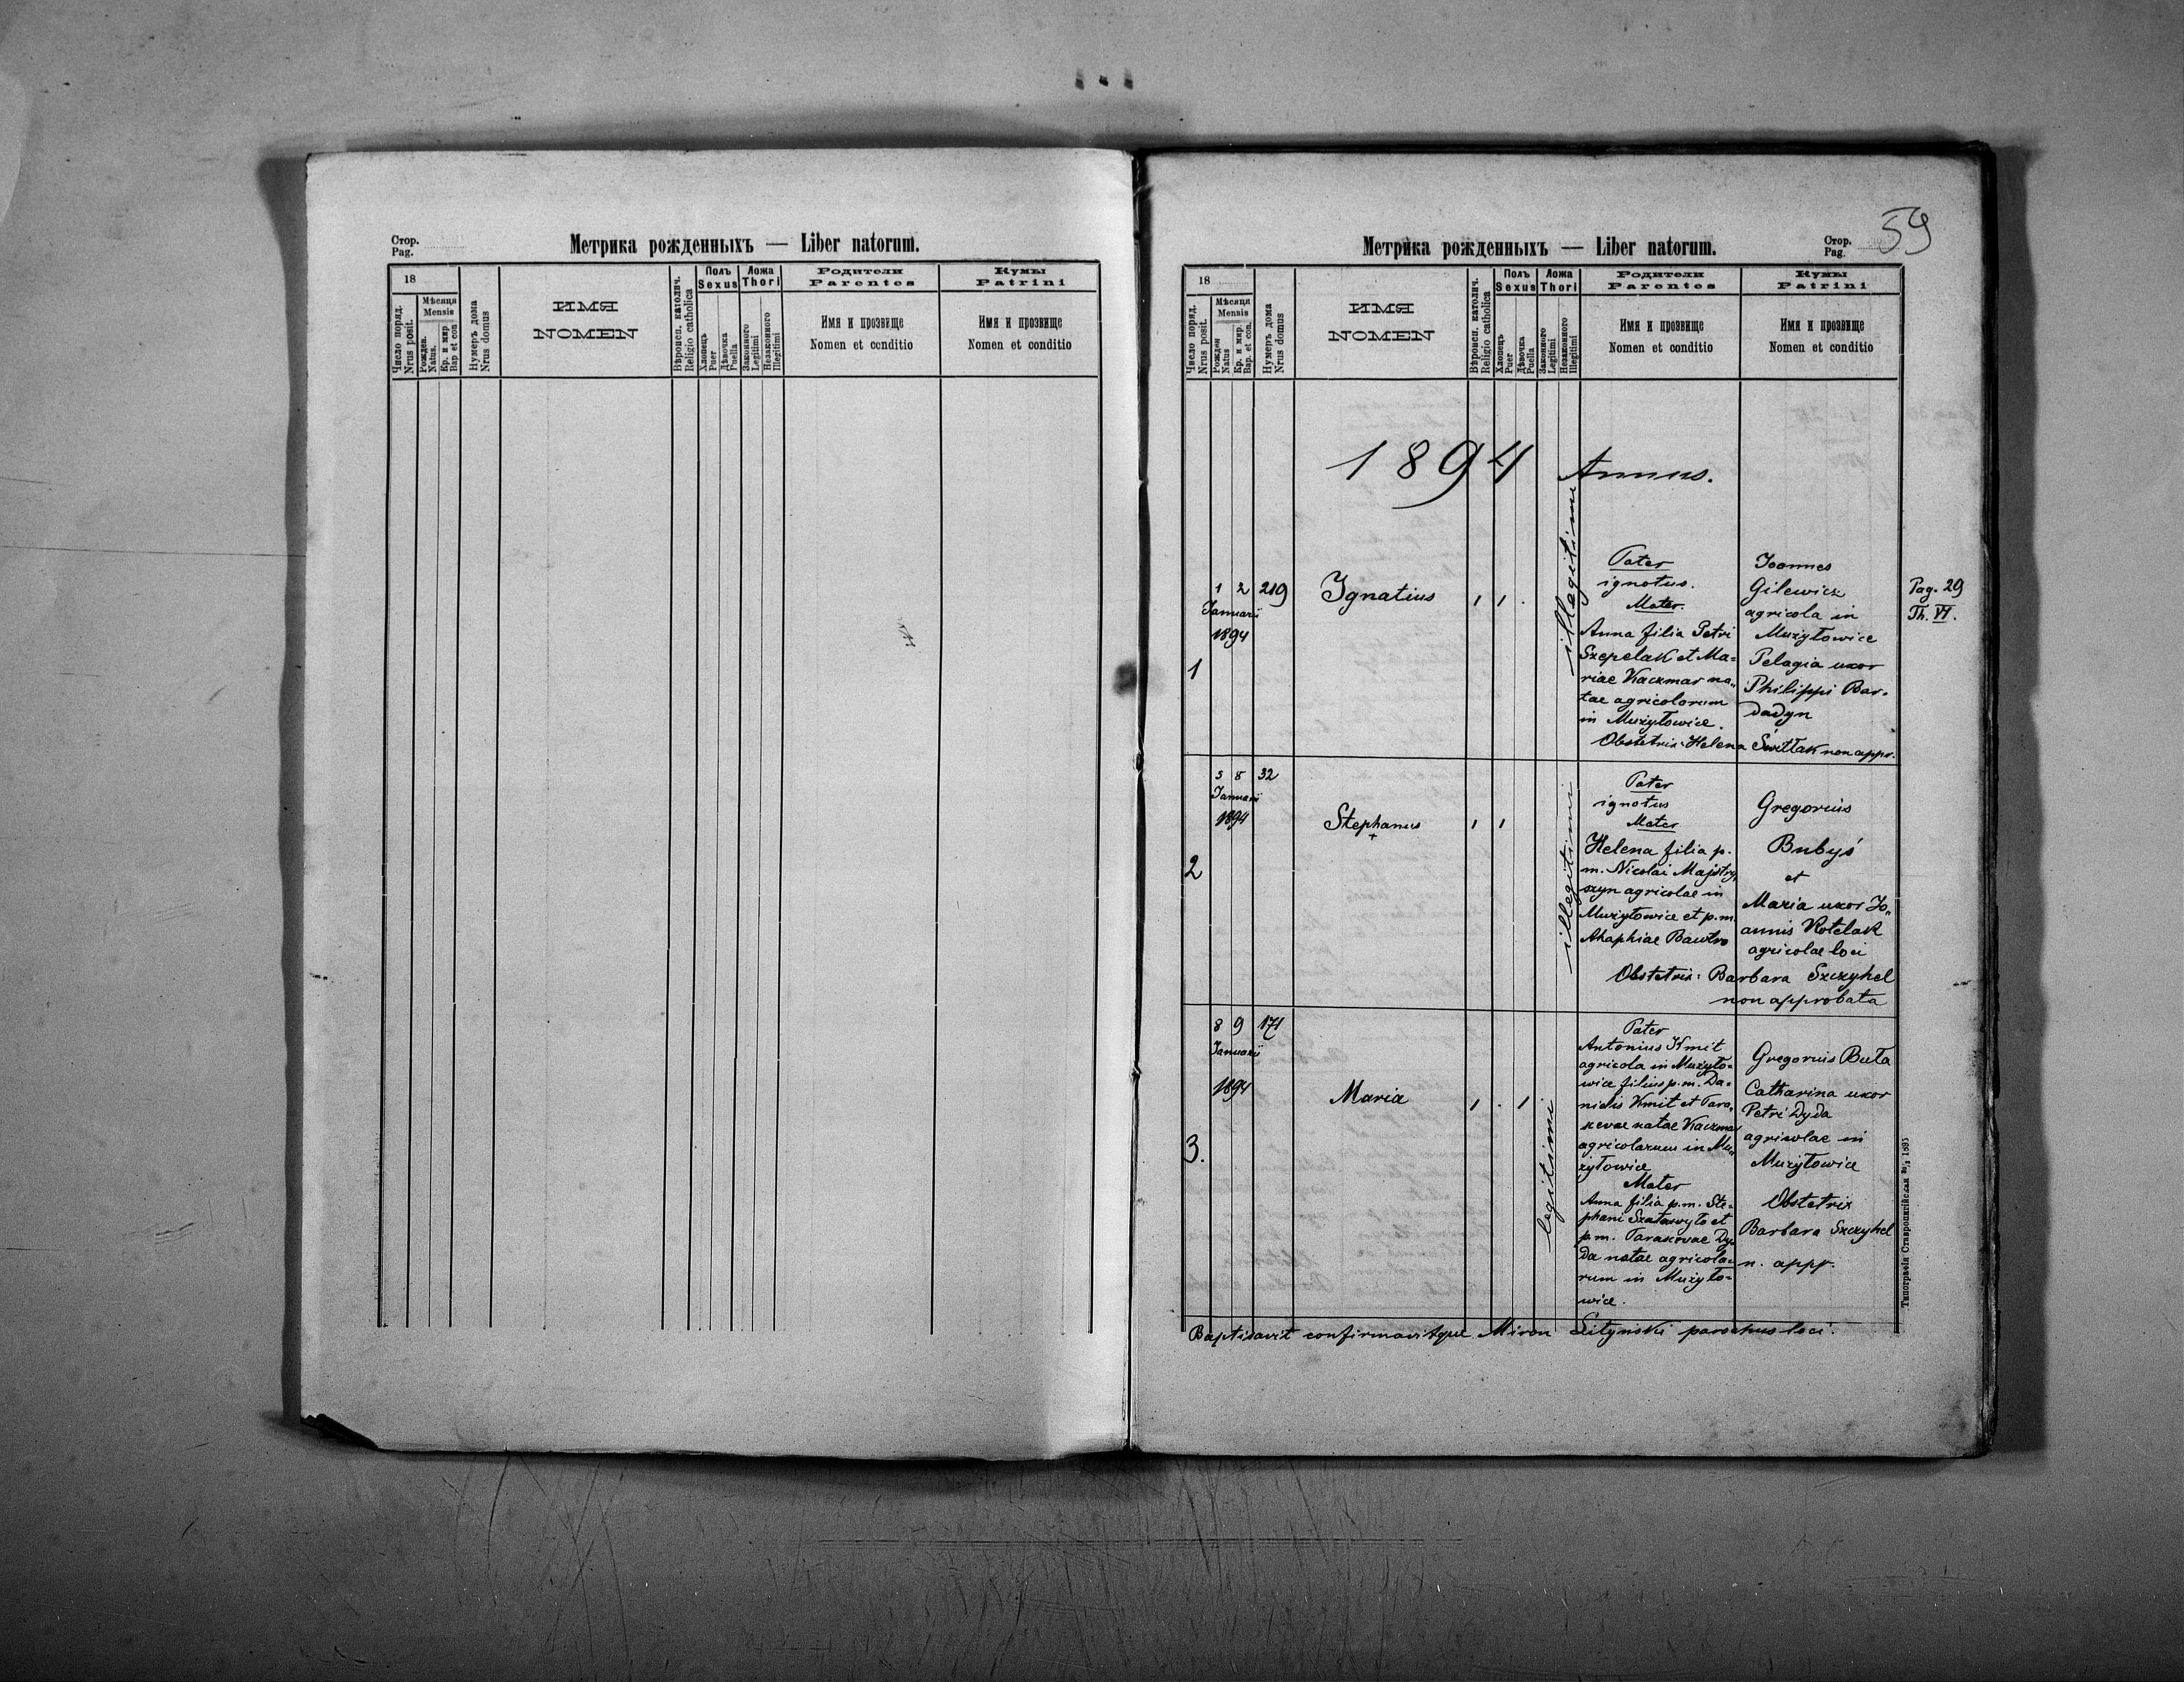 Стор.
Pag.
Метрика рожденныхъ — Liber natorum.
18
Число поряд.
Nrus posit.
Мѣсяця
Mensis
Рожден.
Natus.
Кр. и мир.
Bap et con
Нумеръ дома
Nrus domus
ИМЯ
NOMEN
Вѣроисп. католич.
Religio catholica
Полъ
Sexus
Хлопець
Puer
Дѣвочка
Puella
Ложа
Thori
Законного
Legitimi
Незаконного
Illegitimi
Родители
Parentes
Имя и прозвище
Nomen et conditio
Кумы
Patrini
Имя и прозвище
Nomen et conditio
Метрика рожденныхъ — Liber natorum.
Стор.
Pag.
59
18
Число поряд.
Nrus posit.
Мѣсяця
Mensis
Рожден
Natus
Кр. и мир.
Bap. et con.
Нумеръ дома
Nrus domus
ИМЯ
NOMEN
Вѣроисп. католич.
Religio catholica
Полъ
Sexus
Хлопець
Puer
Дѣвочка
Puella
Ложа
Thori
Законного
Legitimi
Незаконного
Illegitimi
Родители
Parentes
Имя и прозвище
Nomen et conditio
Кумы
Patrini
Имя и прозвище
Nomen et conditio
1894 Annus.
1
1 2 219
Januarii
1894
Ignatius
illegitimi
Pater
ignotus.
Mater.
Anna filia Petri
Szepelak et Ma=
riae Kaczmar na„
tae agricolarum
in Mużyłowice.
Joannes
Gilewicz
agricola in
Mużyłowice
Pelagia uxor
Philippi Bar-
dadyn
Obstetrix: Helena Świtlak non appr.
Pag. 29
Th. VI.
2
5 8 32
Januarii
1894
Stephanus
+
illegitimi
Pater
ignotus
Mater
Helena filia p.
m. Nicolai Majstry„
szyn agricolae in
Mużyłowice et p.m.
Ahaphiae Bawtro
Gregorius
Bubyś
et
Maria uxor Jo„
annis Kotelak
agricolae loci
Obstetrix: Barbara Szczyhel
non approbata
3.
8 9 171
Januarii
1894
Maria
legitimi
Pater
Antonius Kmit
agricola in Mużyło=
wice filius p.m. Da=
nielis Kmit et Para„
scevae natae Kaczmar
agricolarum in Mu„
żyłowice
Mater
Anna filia p.m. Ste=
phani et
p.m. Parascevae Dy„
da natae agricola=
rum in Mużyło=
wice.
Gregorius Buła
Catharina uxor
Petri Dyda
agricolae in
Mużyłowice
Obstetrix
Barbara Szczyhel
n. appr.
Baptisavit confirmavitque Miron Lityński parochus loci.
Типографія Ставропигійская 1893